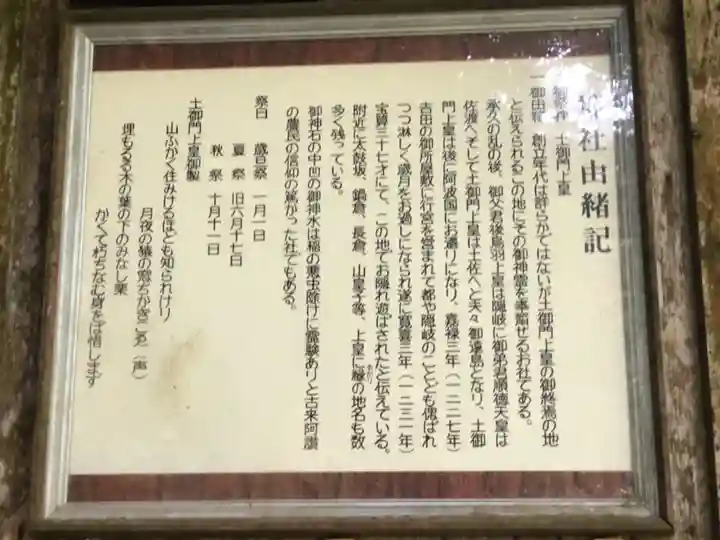 社由緒記
御祭神 土御門上皇
一御由緒 創立年代は詳らかではないが土御門上皇の御終焉の地
と伝えられるこの地にその御神霊を奉齋せるお社である。
承久の乱の後、御父君後鳥羽上皇は隠岐に御弟君順徳天皇は
佐渡へそして土御門上皇は土佐へと夫々御遠島となり、土御
門上皇は後に阿波国にお遷りになり、嘉禄三年(一二二七年)
吉田の御所屋敷に行宮を営まれて都や隠岐のことども偲ばれ
つつ淋しく歳月をお過しになられ遂に寛喜三年(一二三一年)
宝算三十七才にて、この地でお隠れ遊ばされたと伝えている。
附近に太鼓坂、鍋倉、長倉、山皇子等、上皇に縁の地名も数
多く残っている。
御神石の中凹の御神水は稲の悪虫除けに霊験ありと古来阿讃
の農民の信仰の篤かった社でもある。
祭日 歳旦祭 一月一日
夏祭 旧六月十七日
秋祭 十月十一日
土御門上皇御製
山ふかく住みけるほども知られけり
月夜の猿の窓ちかきこえ(声)
埋もるる木の葉の下のみなし栗
かくて朽ちなむ身をば惜します